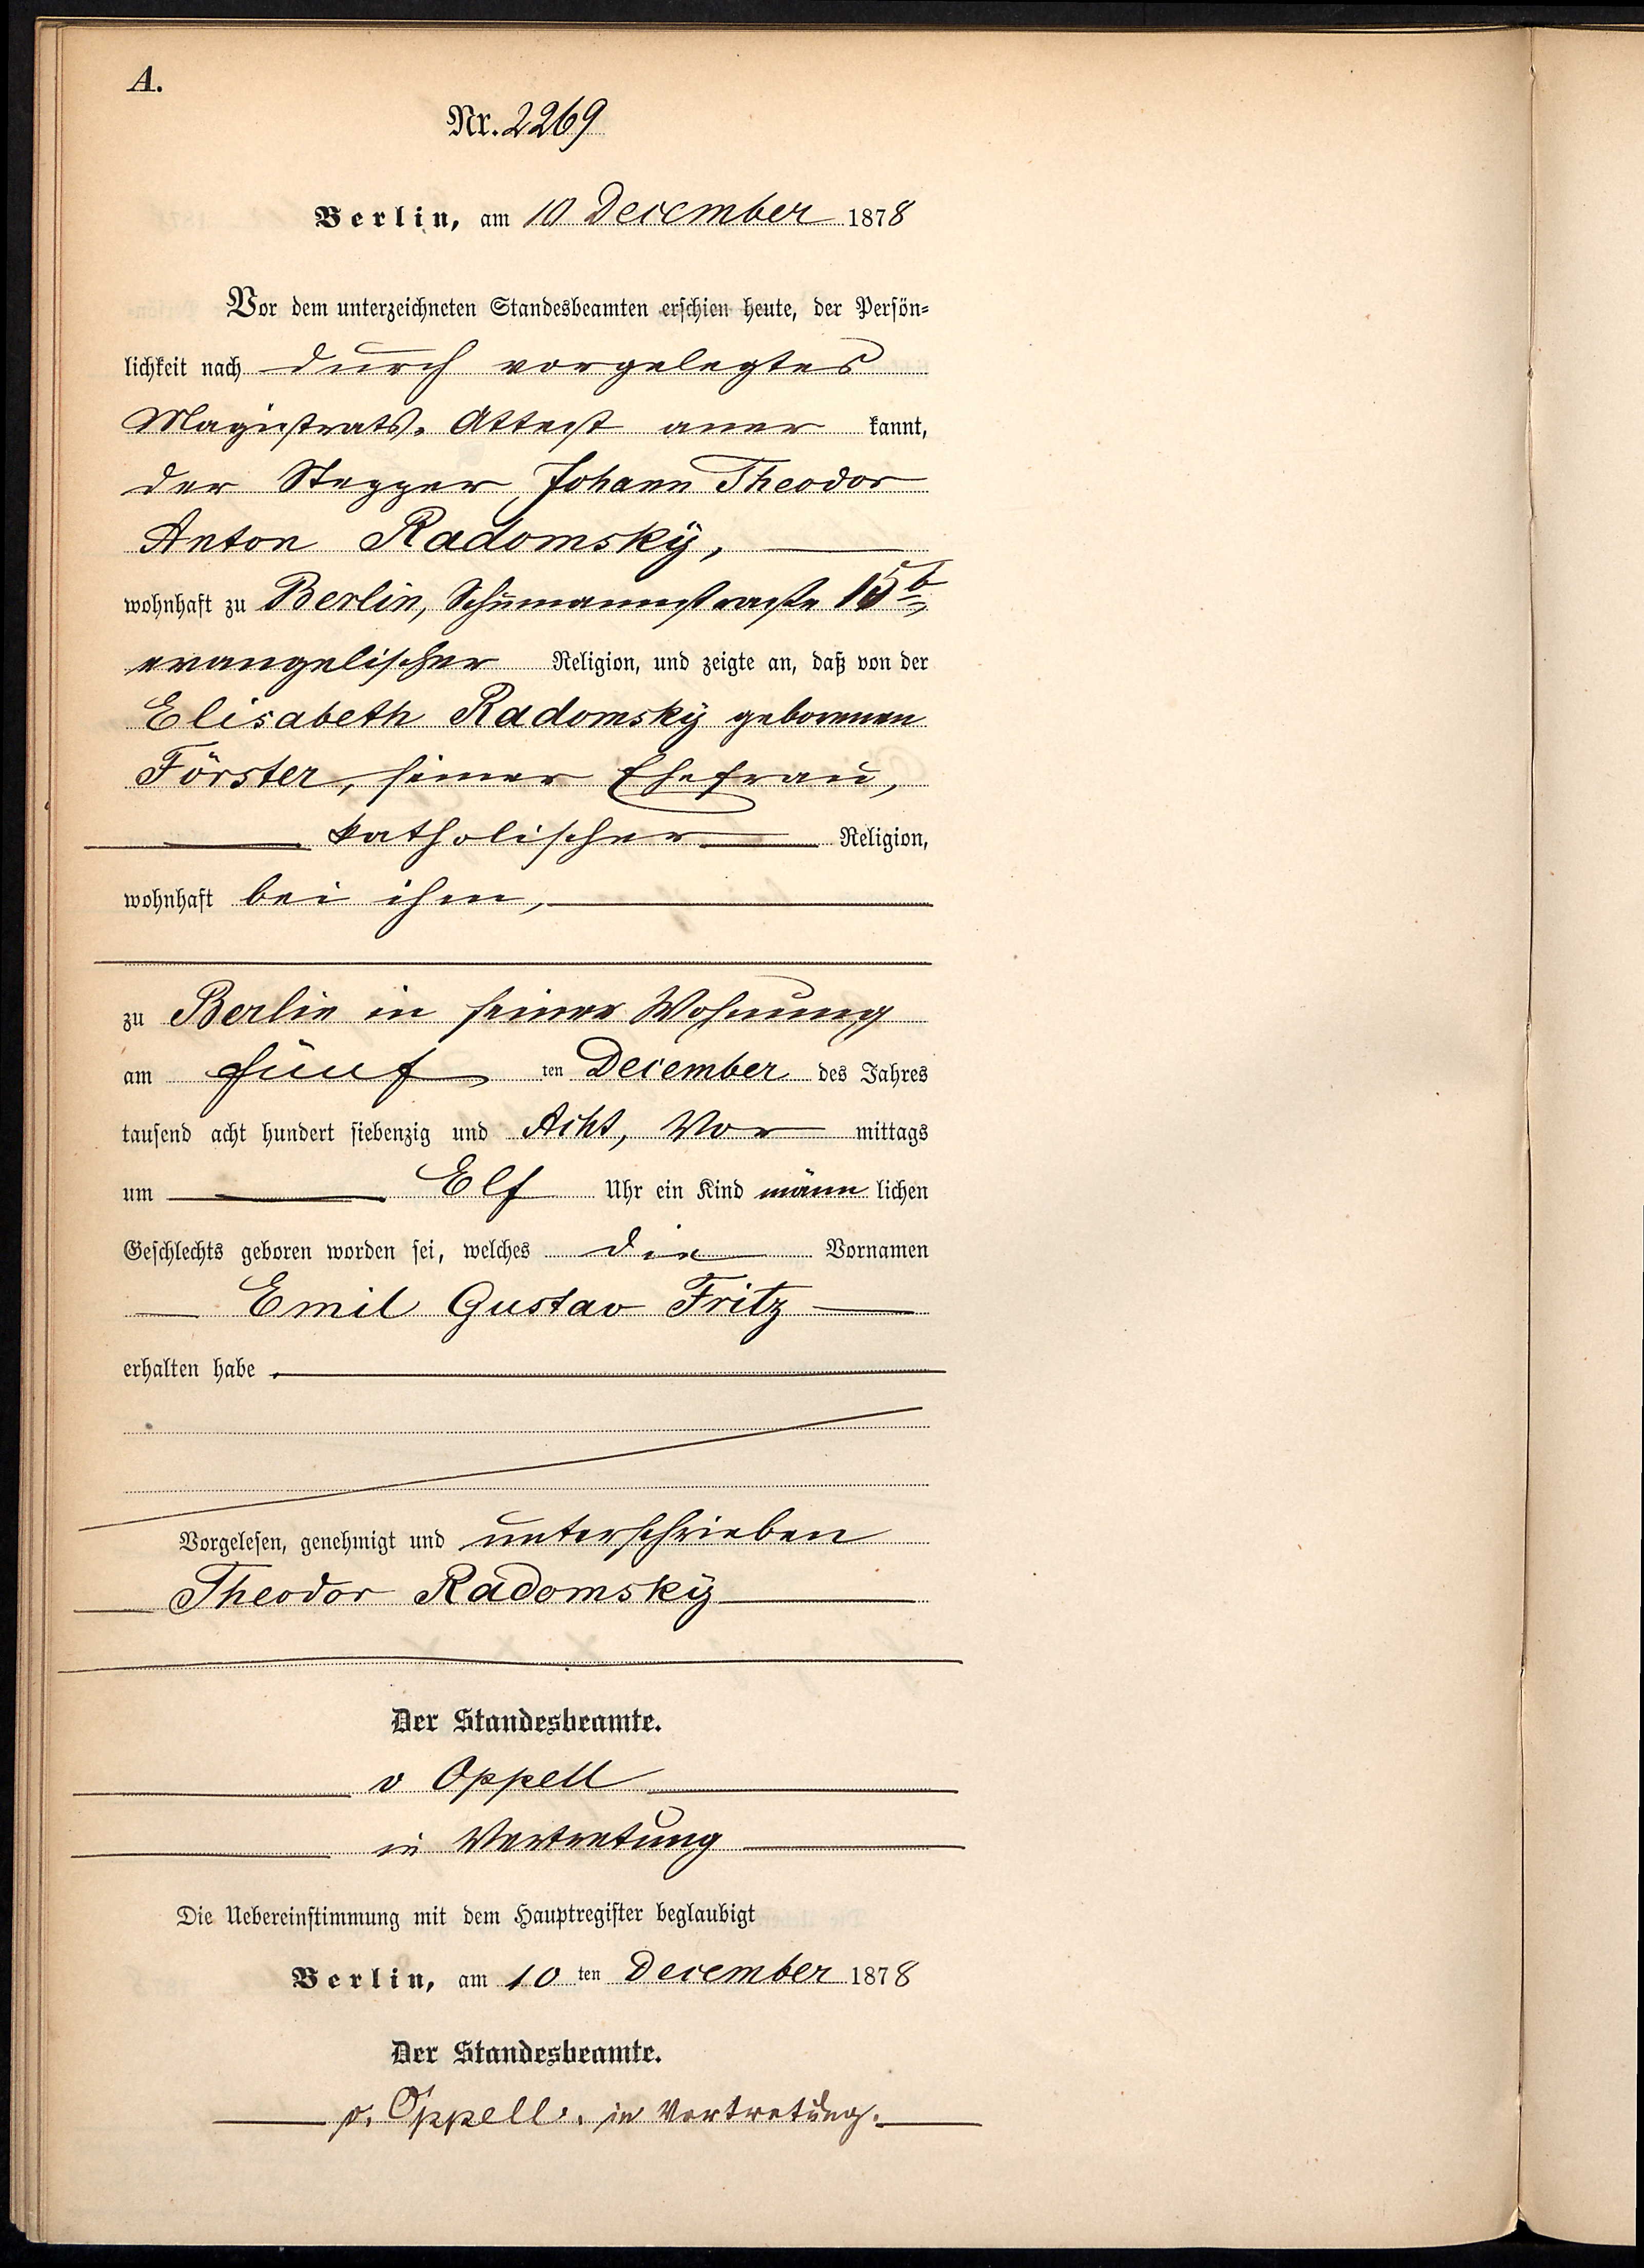 A.
Nr. 2269
Berlin, am 10 December 1878
Vor dem unterzeichneten Standesbeamten erschien heute, der Persön-
lichkeit nach durch vorgelegtes
Magistrats-Attest aner kannt,
der Stepper Johann Theodor
Anton Radomsky,
wohnhaft zu Berlin, Schumannstraße 15b,
evangelischer Religion, und zeigte an, daß von der
Elisabeth Radomsky geborenen
Förster, seiner Ehefrau,
katholischer Religion,
wohnhaft bei ihm,
zu Berlin in seiner Wohnung
am fünf ten December des Jahres
tausend acht hundert siebenzig und Acht, Vor mittags
um Elf Uhr ein Kind männ lichen
Geschlechts geboren worden sei, welches die Vornamen
Emil Gustav Fritz
erhalten habe.
Vorgelesen, genehmigt und unterschrieben
Theodor Radomsky
Der Standesbeamte.
v Oppell
in Vertretung
Die Uebereinstimmung mit dem Hauptregister beglaubigt
Berlin, am 10 ten December 1878
Der Standesbeamte.
v. Oppell. in Vertretung.